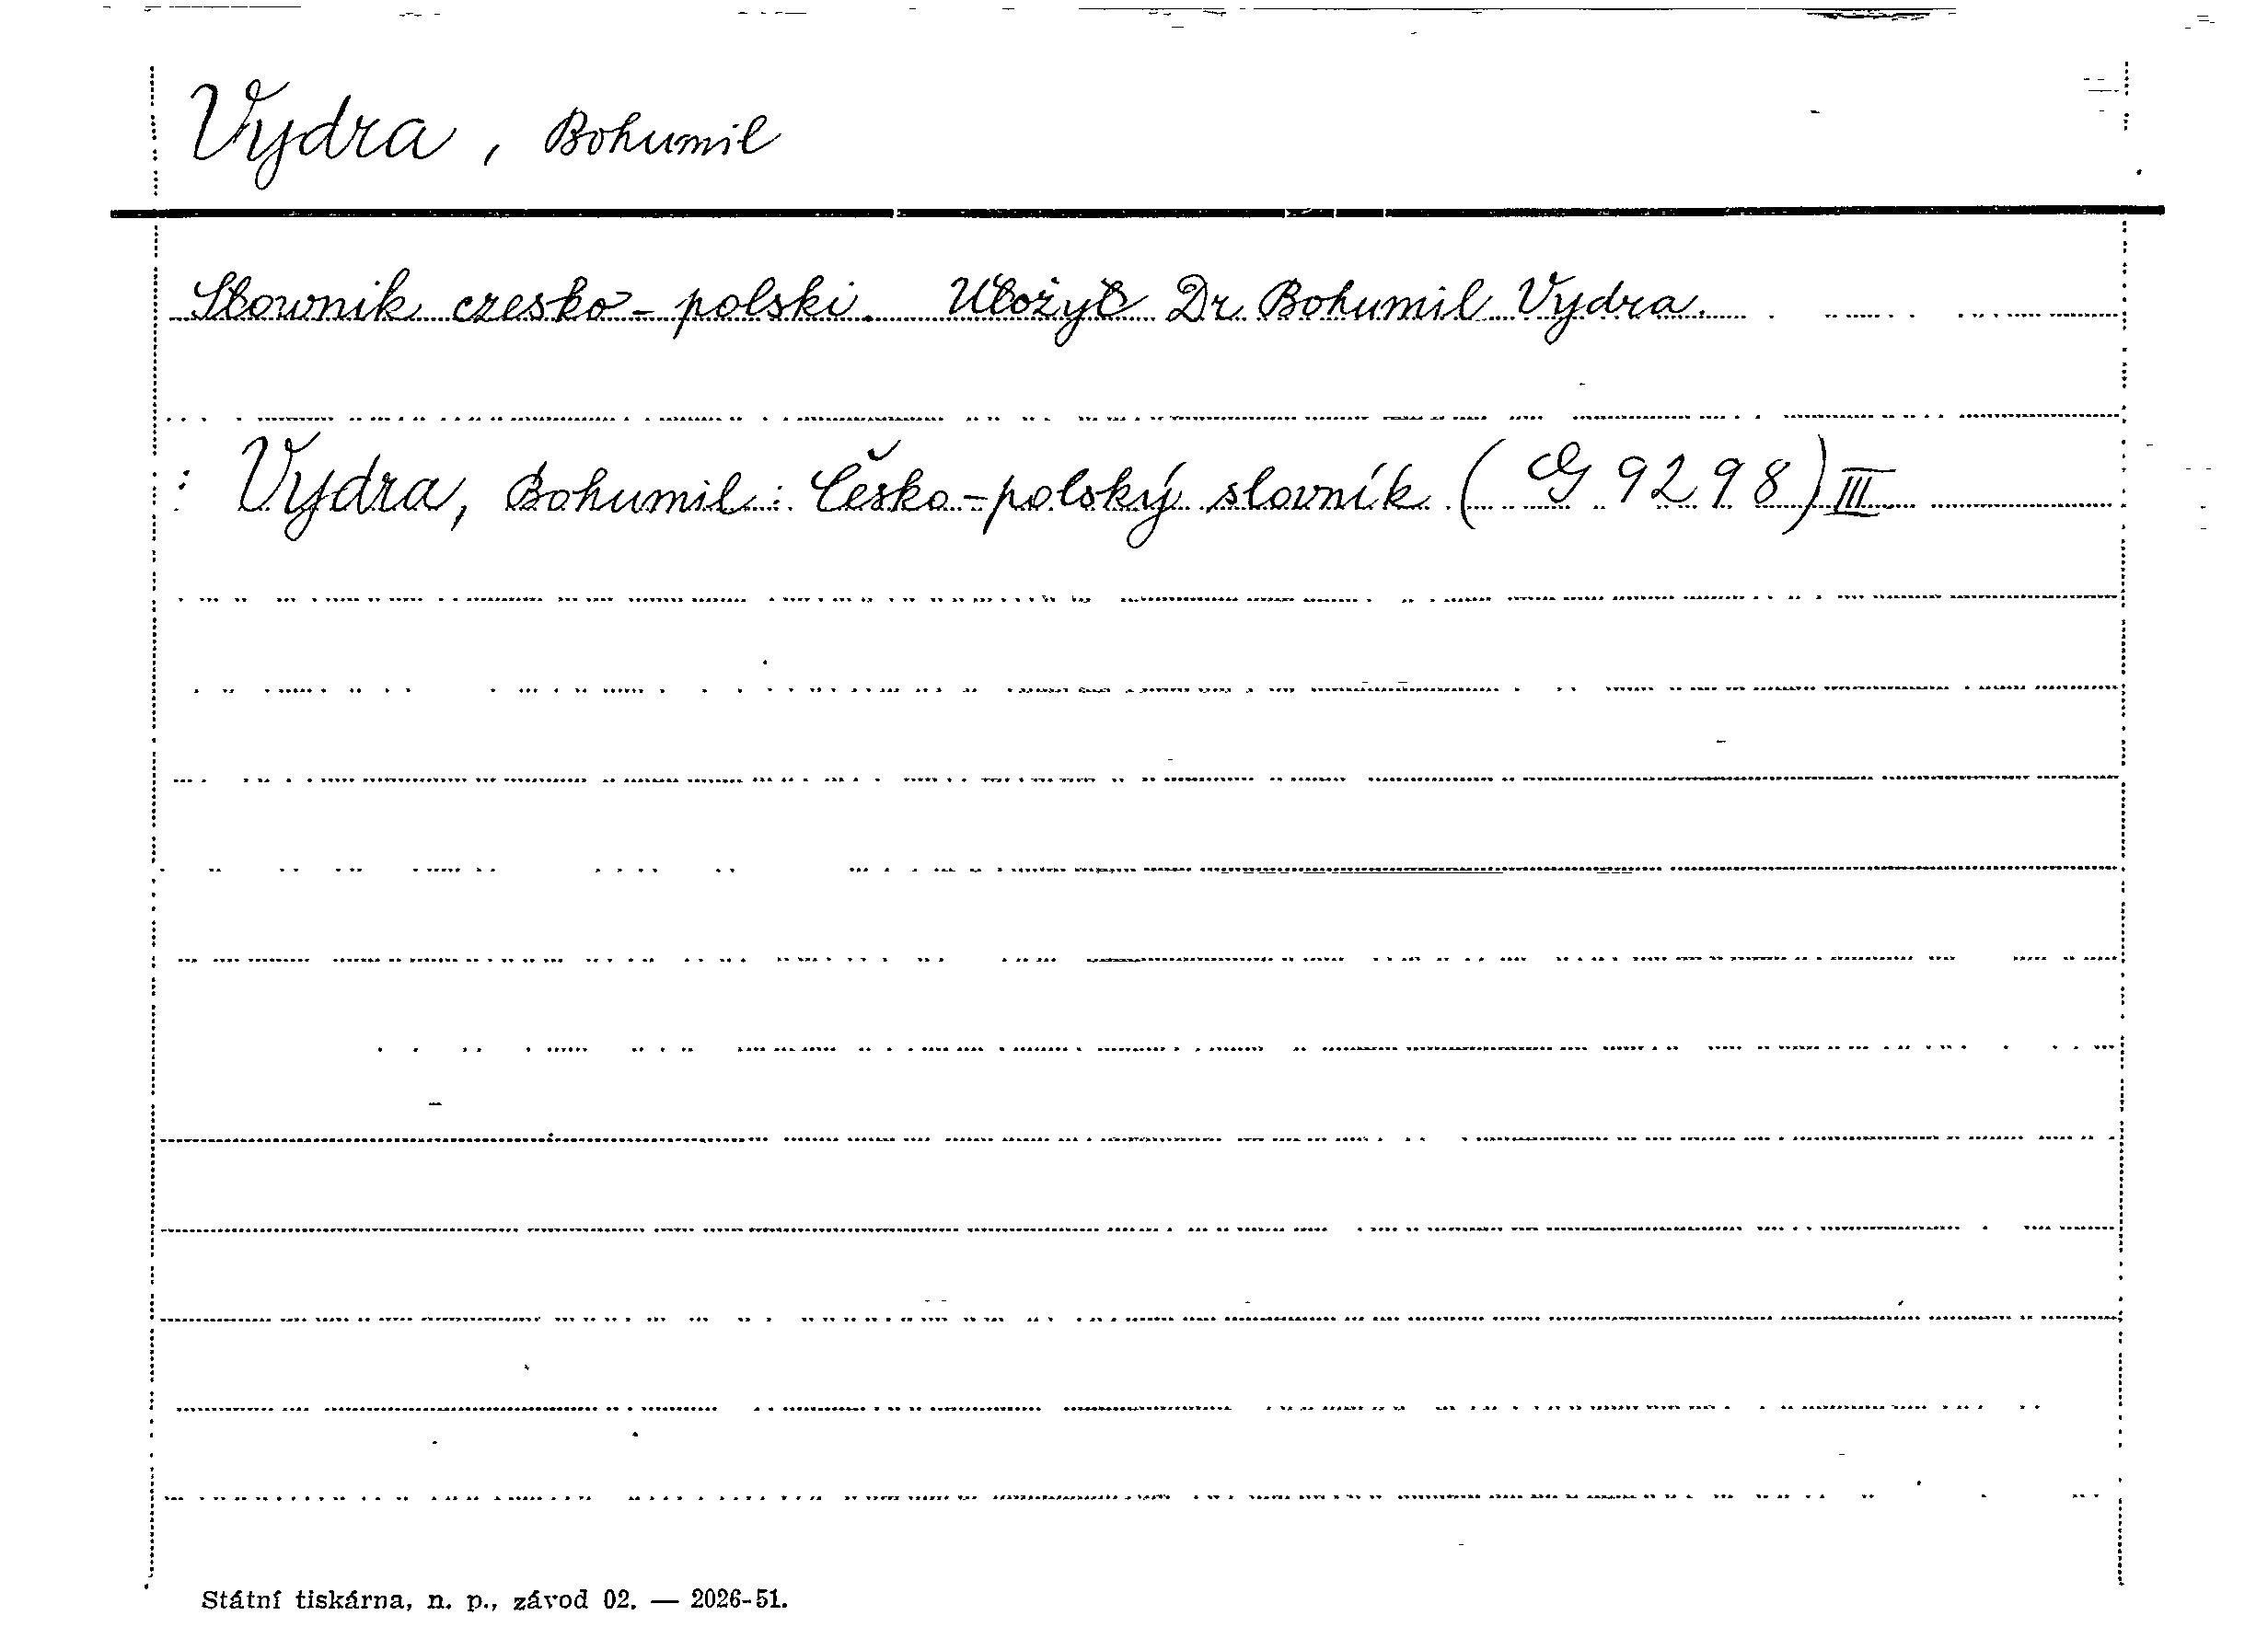 Vydra, Bohumil
Słownik czesko-polski. Ułożył Dr Bohumil Vydra.
: Vydra, Bohumil: Česko-polský slovník (G 9298) III
Státní tiskárna, n. p., závod 02. — 2026-51.